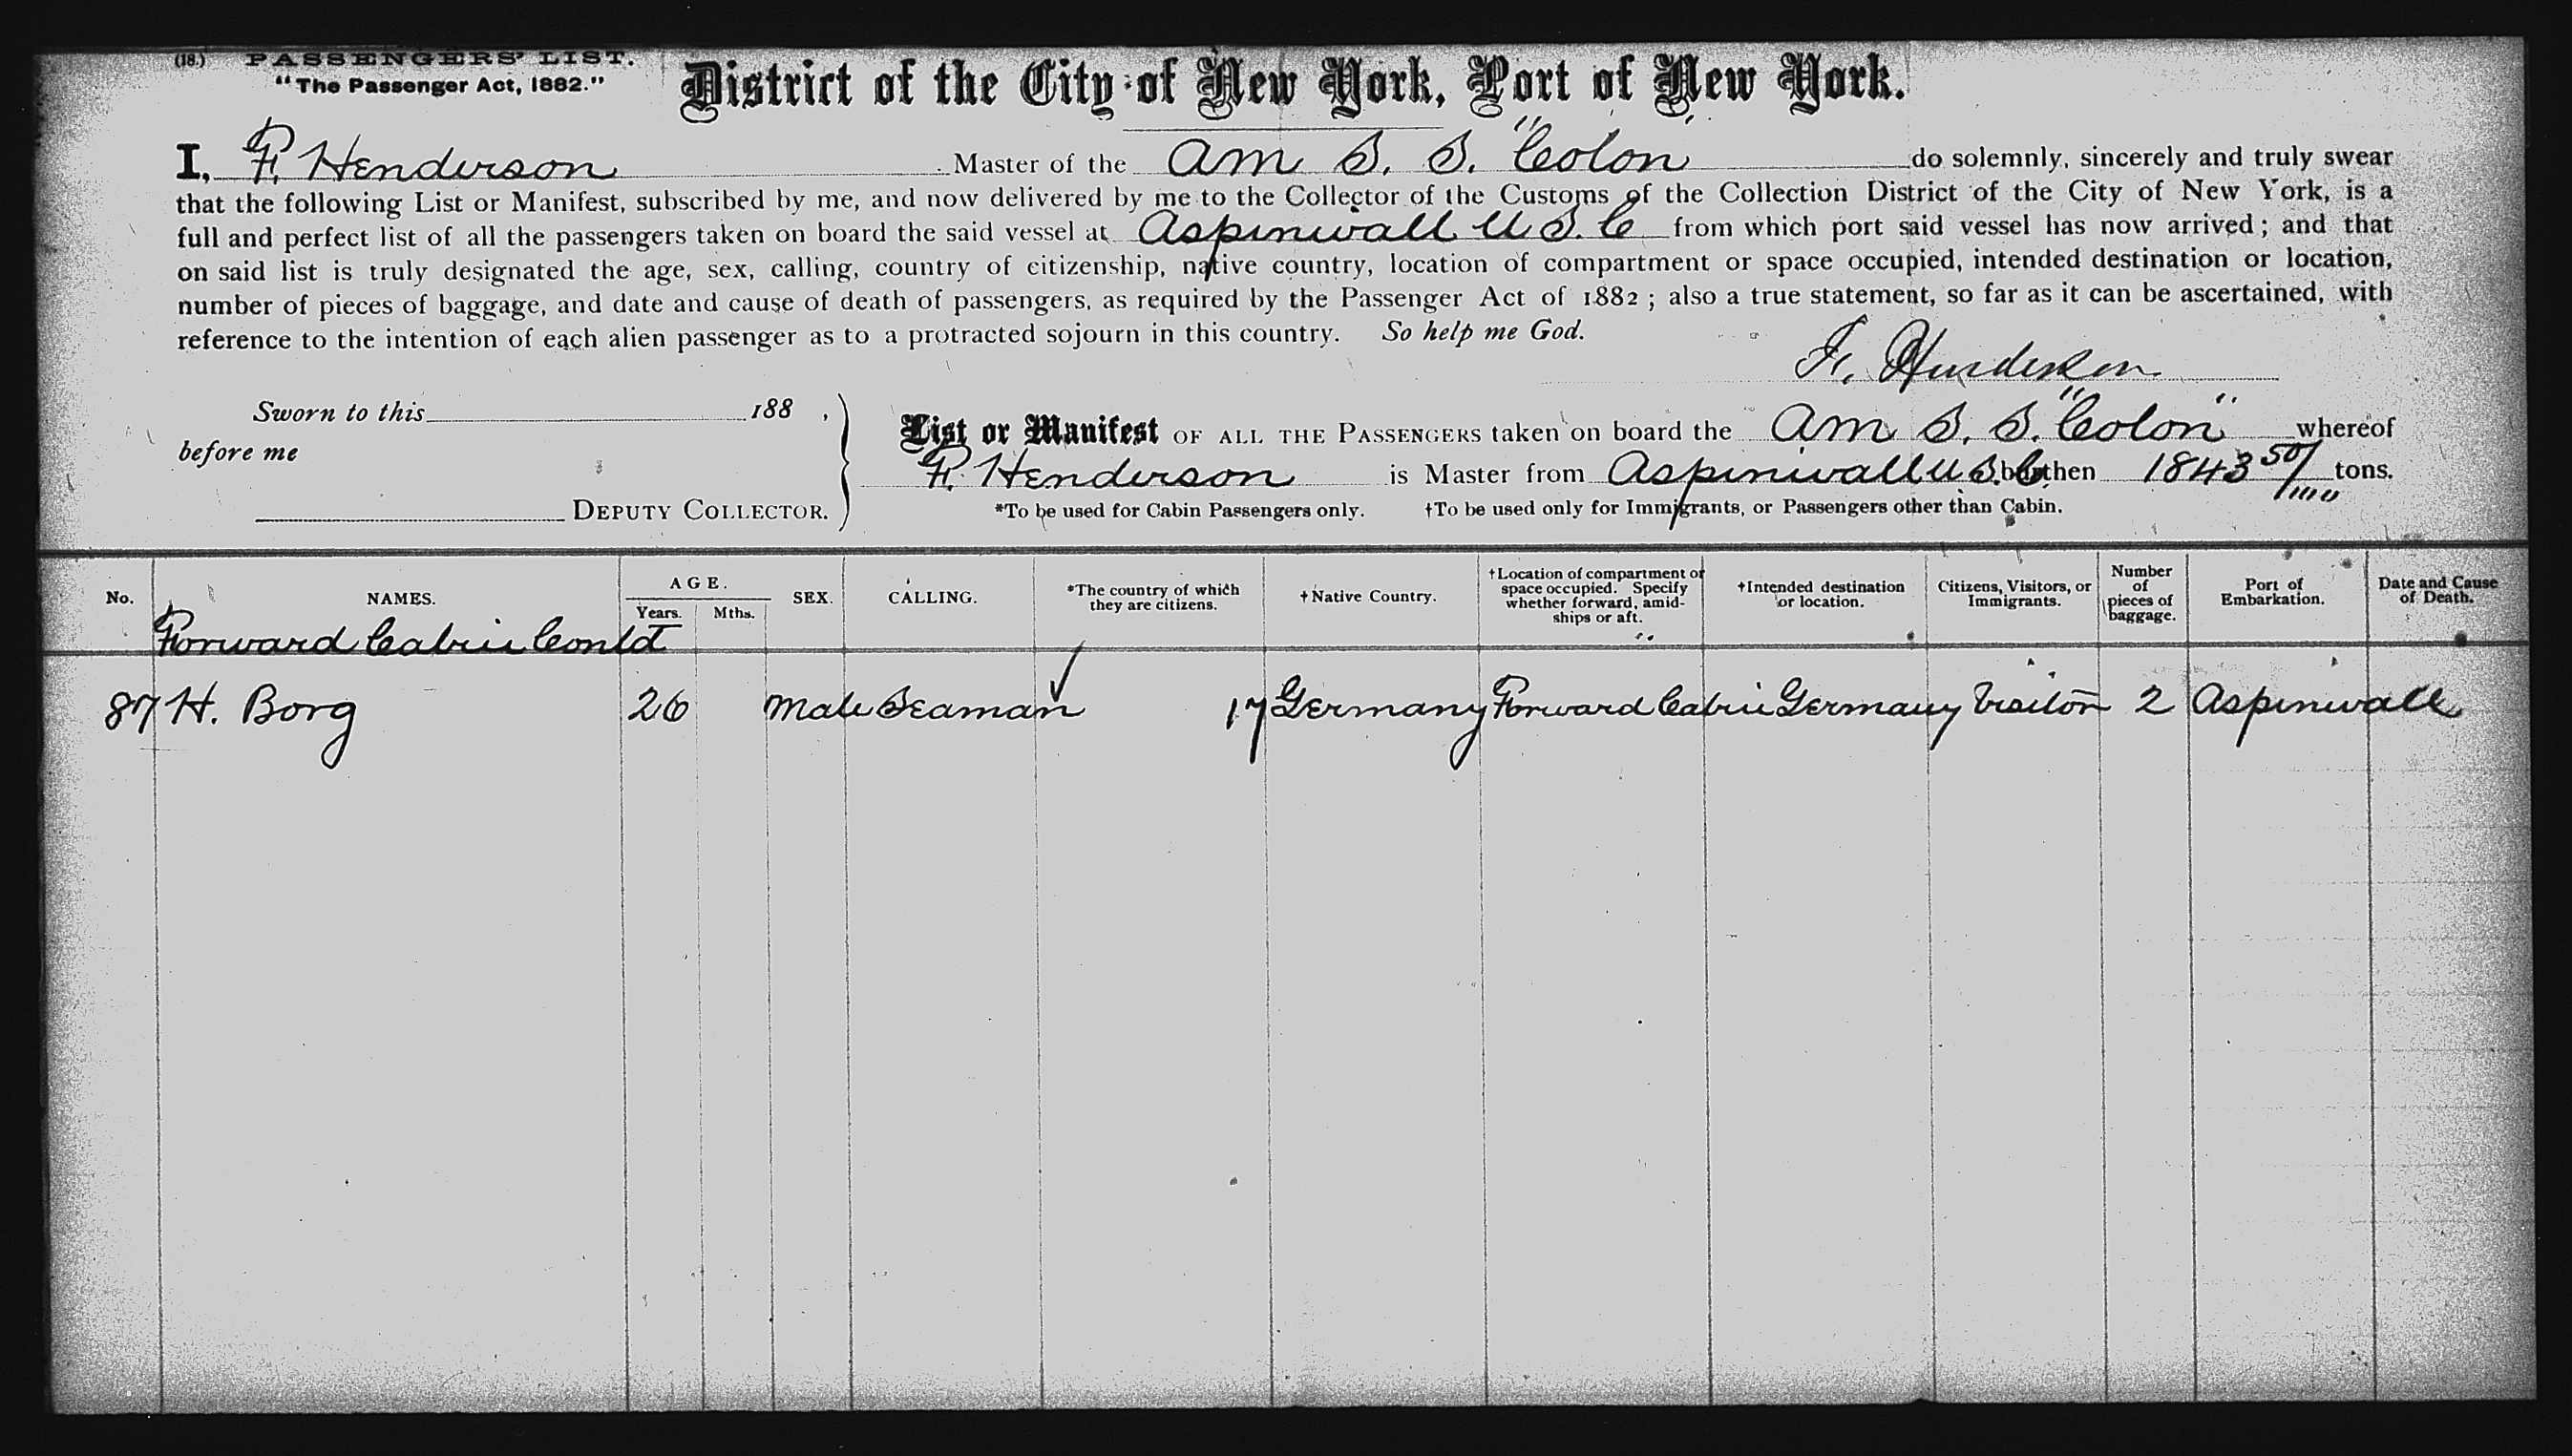 (18.) PASSENGERS' LIST.
"The Passenger Act, 1882."
District of the City of New York, Port of New York.
I, F. Henderson Master of the Am S. S. "Colon" do solemnly, sincerely and truly swear
that the following List or Manifest, subscribed by me, and now delivered by me to the Collector of the Customs of the Collection District of the City of New York, is a
full and perfect list of all the passengers taken on board the said vessel at Aspinwall U S. C from which port said vessel has now arrived; and that
on said list is truly designated the age, sex, calling, country of citizenship, native country, location of compartment or space occupied, intended destination or location,
number of pieces of baggage, and date and cause of death of passengers, as required by the Passenger Act of 1882; also a true statement, so far as it can be ascertained, with
reference to the intention of each alien passenger as to a protracted sojourn in this country. So help me God.
F. Henderson
Sworn to this 188 ,
before me
DEPUTY COLLECTOR.
List or Manifest OF ALL THE PASSENGERS taken on board the Am S. S. "Colon" whereof
F. Henderson is Master from Aspinwall U S. C. burthen 1843 50/100 tons.
*To be used for Cabin Passengers only. †To be used only for Immigrants, or Passengers other than Cabin.
No. NAMES. AGE. Years. Mths. SEX. CALLING. *The country of which they are citizens. †Native Country. †Location of compartment or space occupied. Specify whether forward, amidships or aft. †Intended destination or location. Citizens, Visitors, or Immigrants. Number of pieces of baggage. Port of Embarkation. Date and Cause of Death.
Forward Cabin Contd
87 H. Borg 26 Male Seaman 17 Germany Forward Cabin Germany Visitor 2 Aspinwall